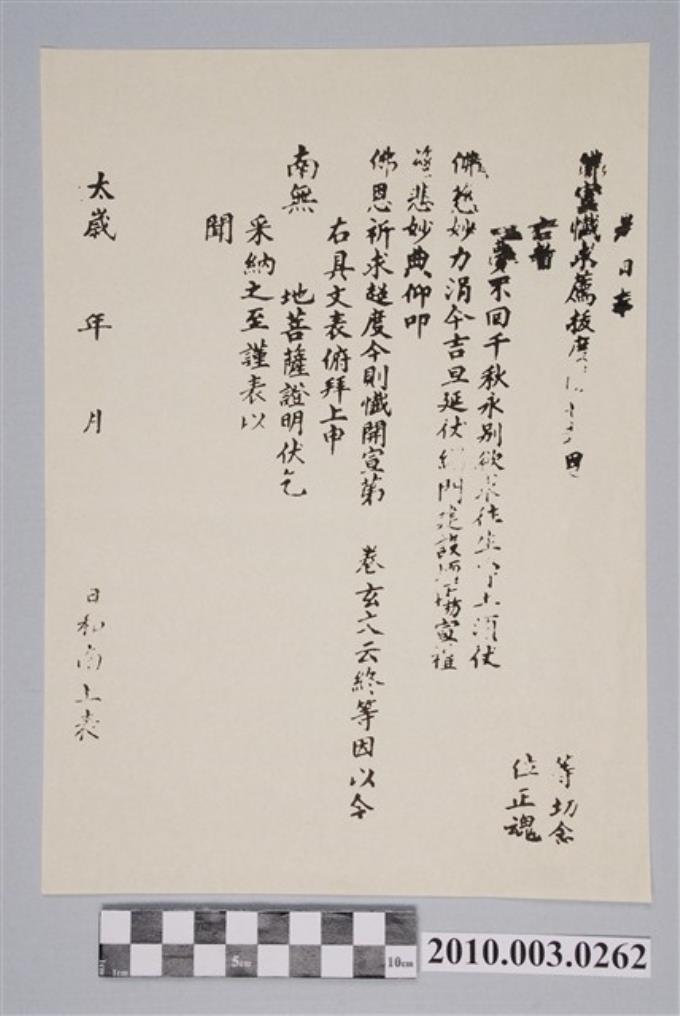 日奉
佛宣懺求薦拔度 等切念
右暫 位正魂
夢不回千秋永別欲求往生淨土須伏
佛慈妙力涓今吉旦延伏緇門建設壇場宣禮
悲妙典仰叩
佛恩祈求超度今則懺開宣第 卷玄六云終等因以今
右具文表俯拜上申
南無 地菩薩證明伏乞
采納之至謹表以
聞
太歲 年 月 日和南上表
1cm 5cm 10cm
2010.003.0262